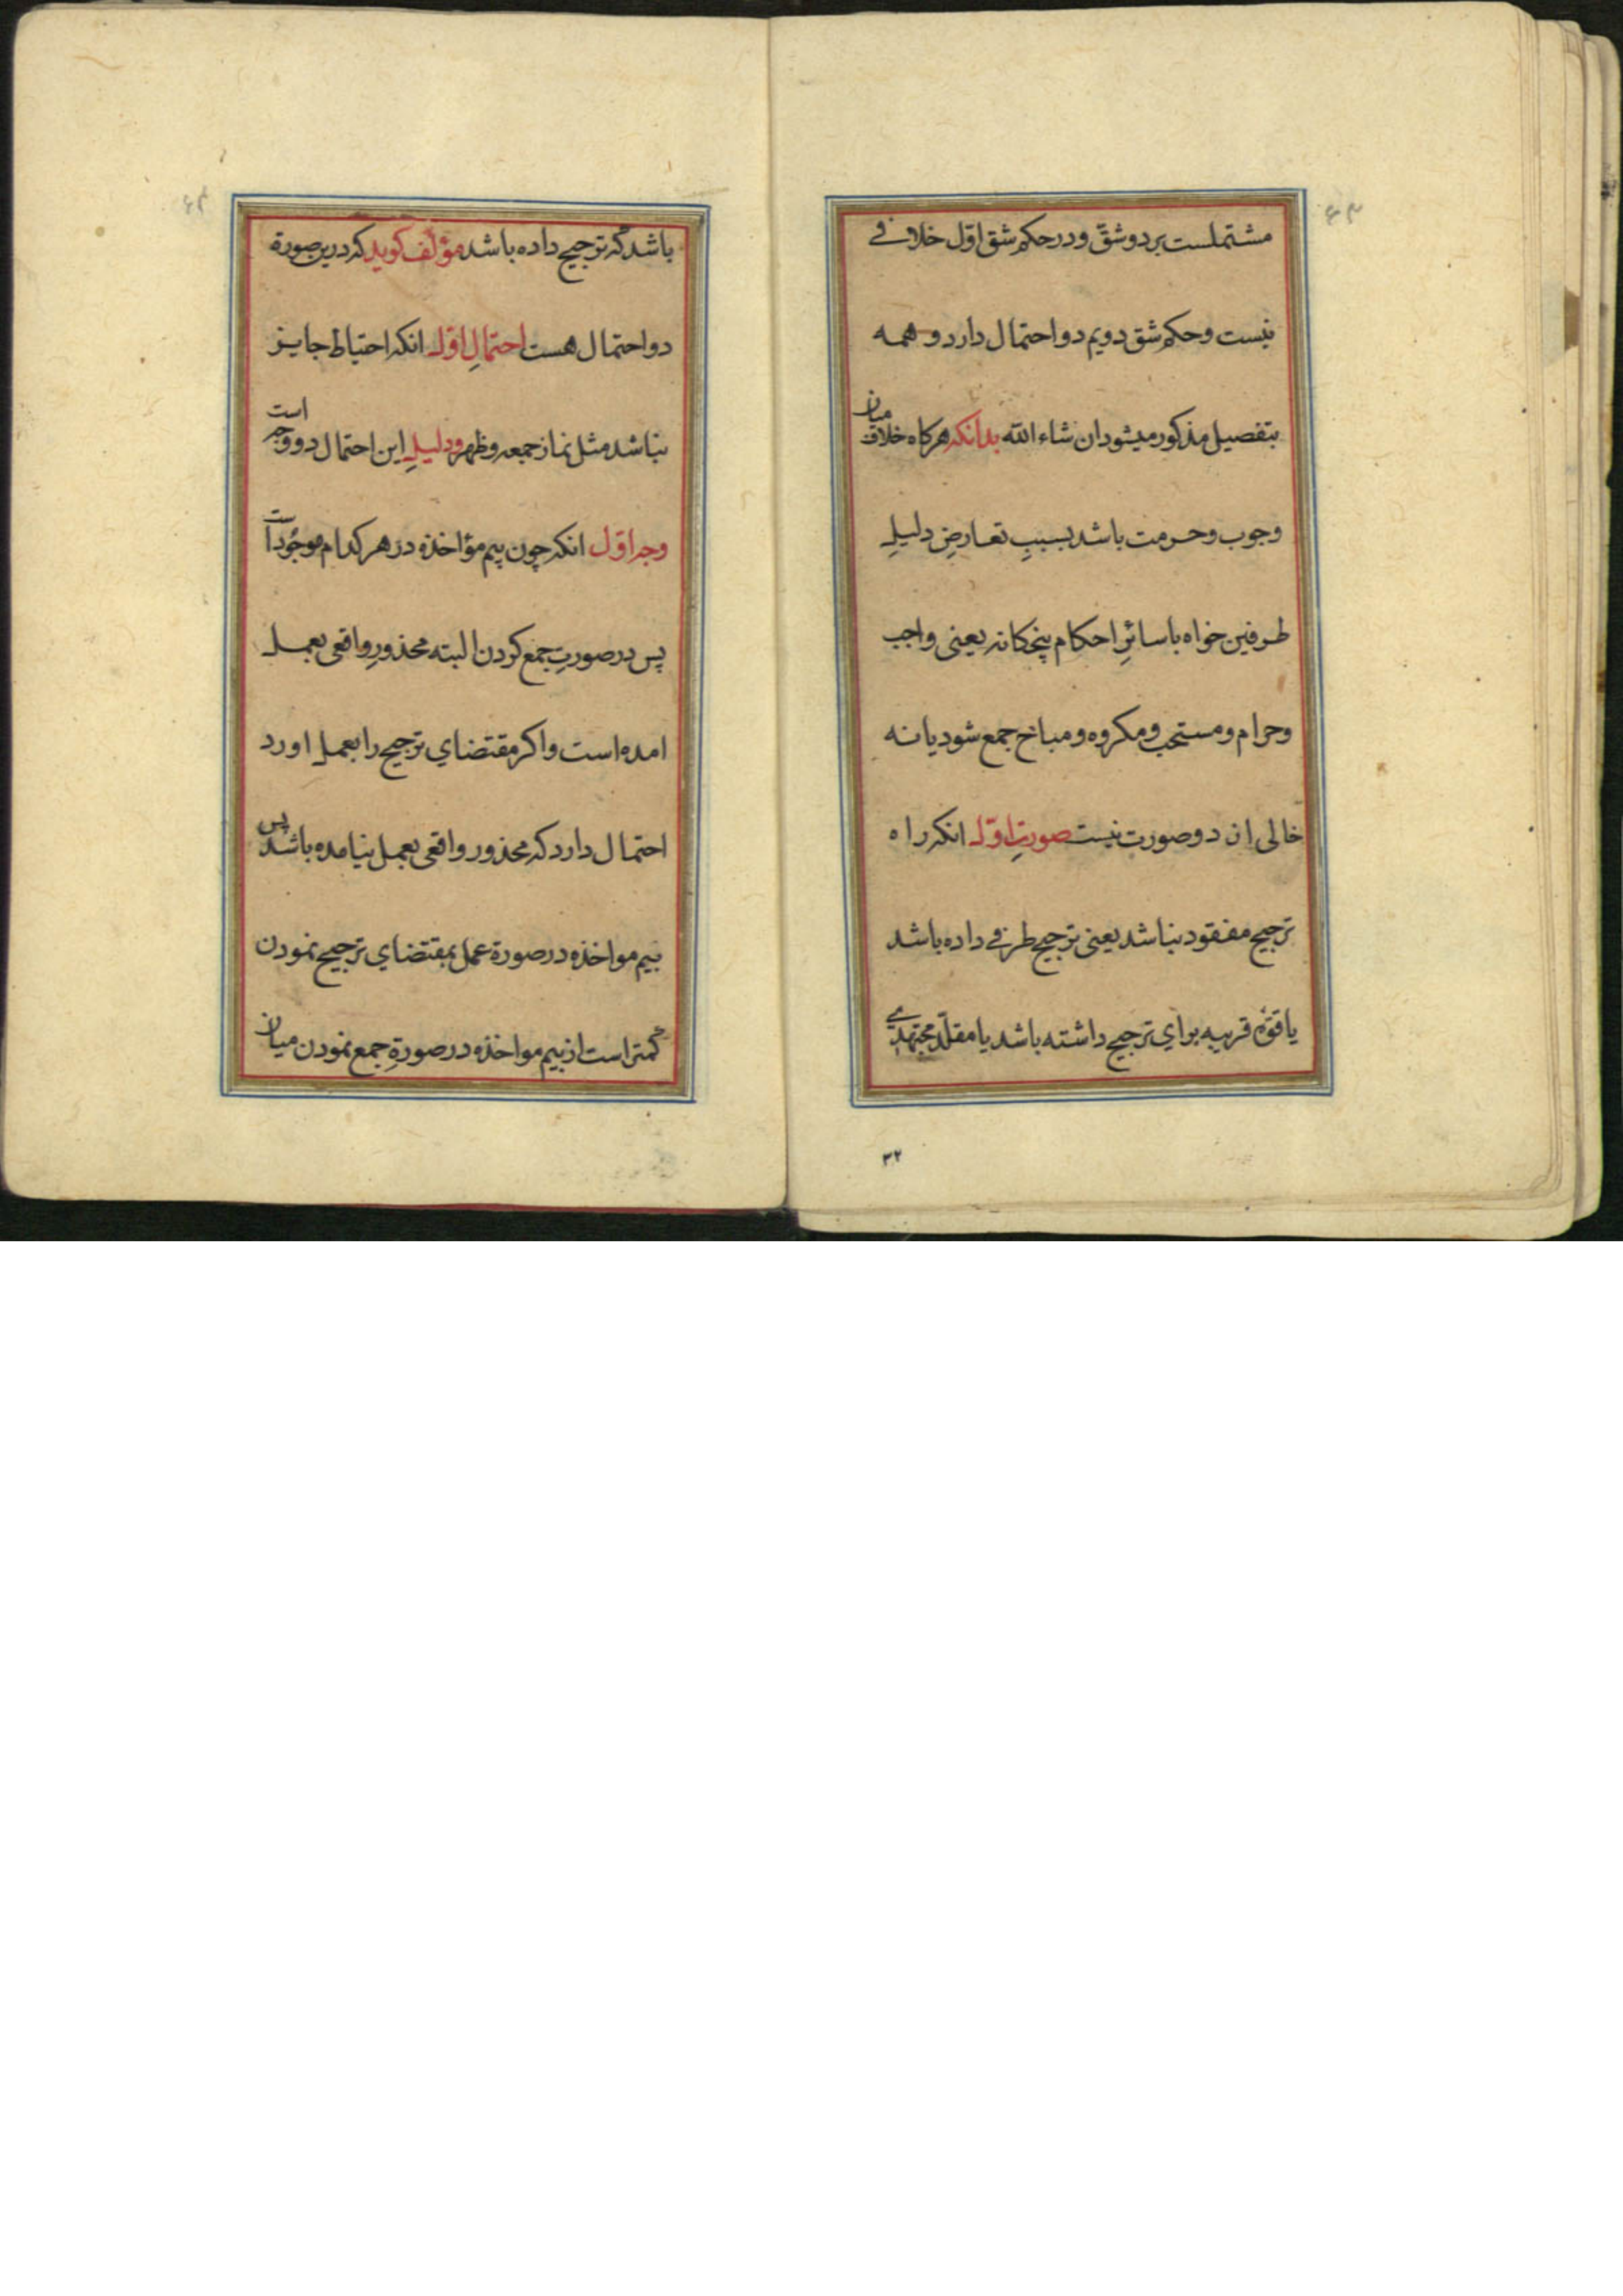 مشتملست بر دو شقّ و در حکم شق اوّل خلافی
نیست و حکم شق دویم دو احتمال دارد و همه
بتفصیل مذکور میشود ان شاء الله بدانکه هرکاه خلاف میان
وجوب و حرمت باشد بسببِ تعارضِ دلیلِ
طرفین خواه با سائرِ احکام پنجکانه یعنی واجب
و حرام و مستحب و مکروه و مباح جمع شود یا نه
خالی از دو صورت نیست صورتِ اوّل انکه راه
ترجیح مفقود نباشد یعنی ترجیح طرفی داده باشد
یا قوّه قریبه برای ترجیح داشته باشد یا مقلّد مجتهدی
۳۲
باشد که ترجیح داده باشد مؤلّف کوید که درین صورة
دو احتمال هست احتمالِ اوّل انکه احتیاط جایز
نباشد مثل نماز جمعه و ظهر و دلیلِ این احتمال دو وجه است
وجه اوّل انکه چون بیم مؤاخذه در هر کدام موجُود است
پس در صورتِ جمع کردن البته محذورِ واقعی بعمل
امده است و اکر مقتضای ترجیح را بعمل اورد
احتمال دارد که محذور واقعی بعمل نیامده باشد پس
بیم مواخذه در صورة عمل بمقتضای ترجیح نمودن
کمتر است از بیم مواخذه در صورةِ جمع نمودن میان